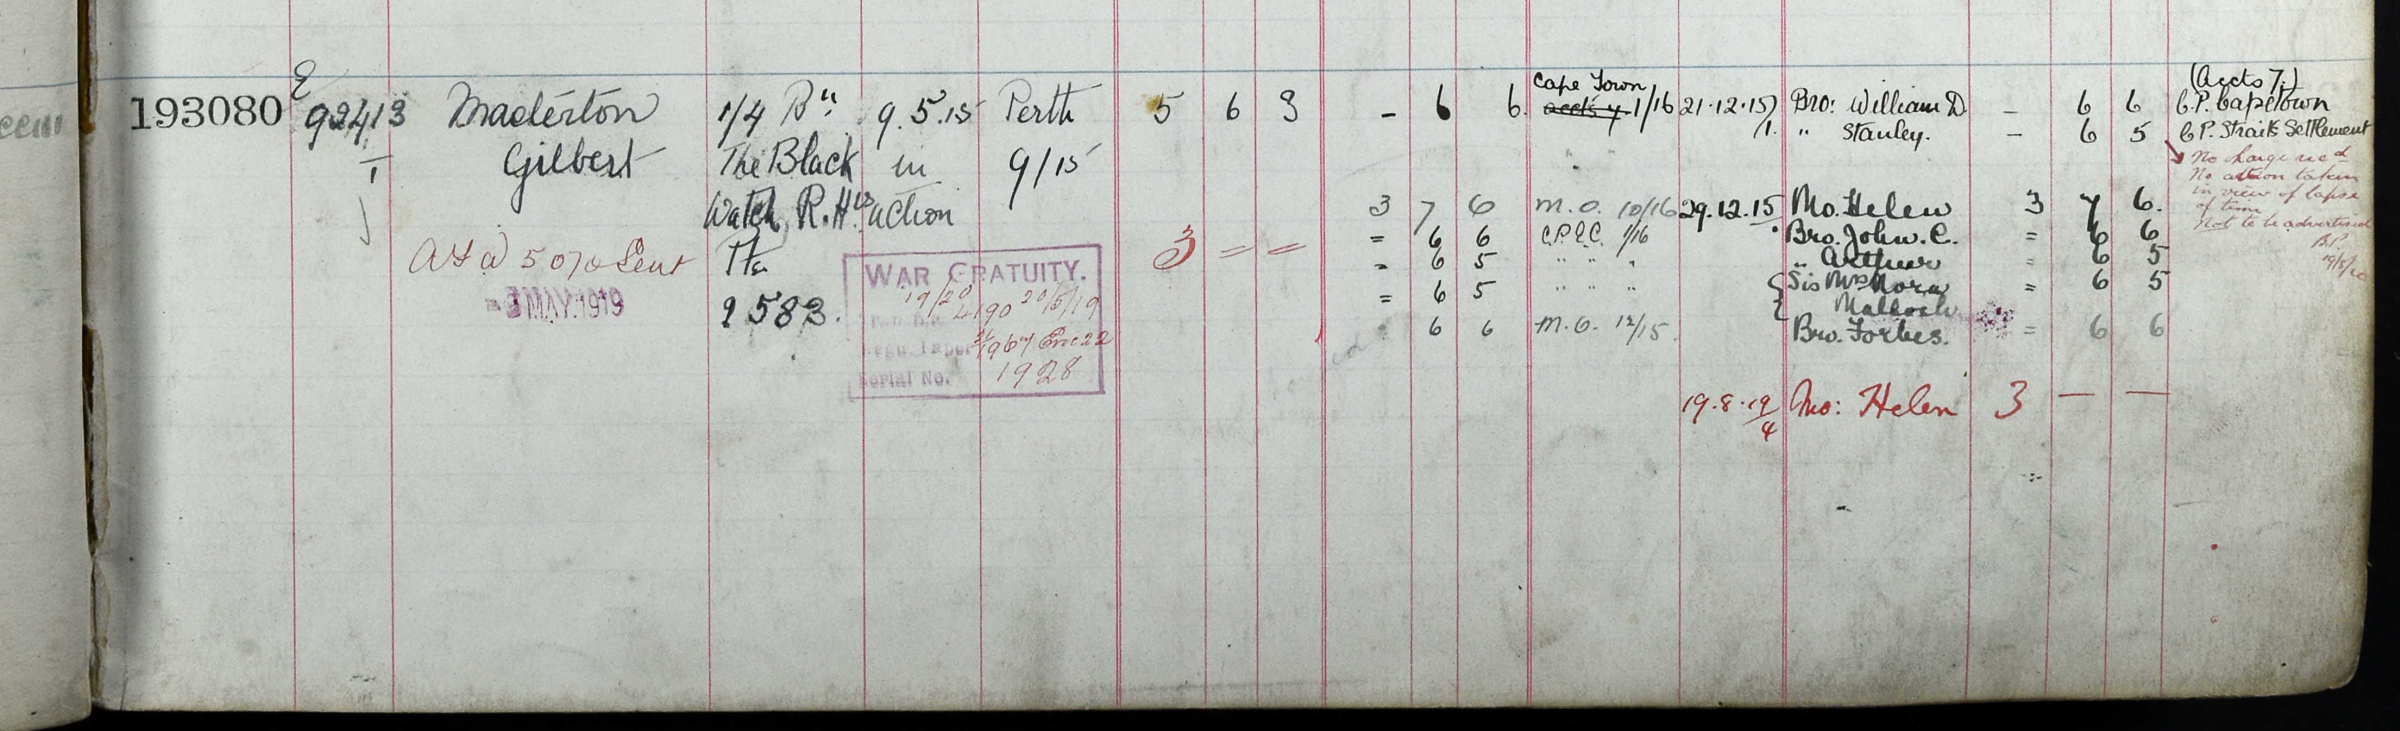 193080 E 92413 Maderton 1/4 Bn 9.5.15 Perth 5 6 3 - 6 6 Cape Town 1/16 21.12.15/1. Bro: William D - 6 6 (Accts 7.) C.P. Capetown
I Gilbert The Black in 9/15 " Stanley. - 6 5 C.P. Straits Settlement
Watch R.Hrs action
No charge recd
No action taken
in view of lapse
of time
Not to be advertised
B.P.
19/5/20
3 7 6 M.O. 10/16 29.12.15/1. Mo. Helen 3 7 6.
AF W 5070 Sent Pte 3 = = = 6 6 C.P.&C. 1/16 Bro. John. C. = 6 6
5 MAY 1919 2583. - 6 5 " " " " Arthur = 6 5
= 6 5 " " " Sis Mrs Nora Malloch = 6 5
- 6 6 M.O. 12/15. Bro. Forbes. = 6 6
WAR GRATUITY.
19/20 4190 20/5/19
1967 Enc 22
Serial No. 1928
19.8.19/4 Mo: Helen 3 — —